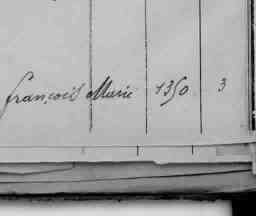 françois Marie 1350 3